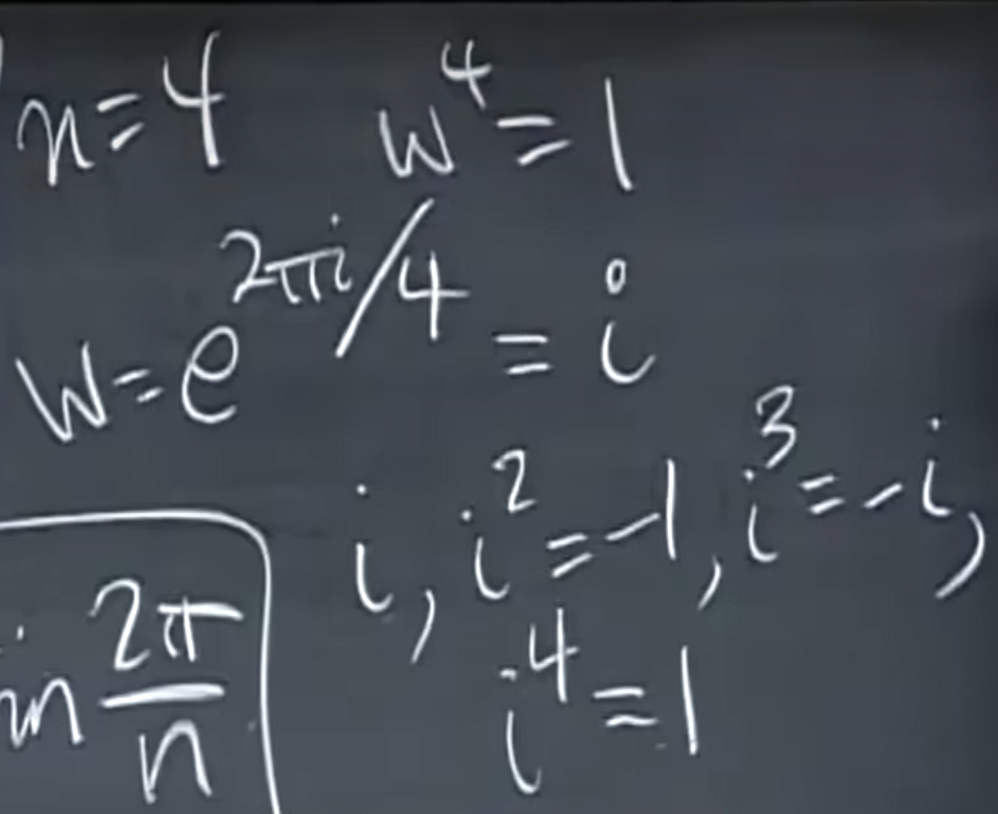 n=4 w⁴=1
w=e^{2πi/4} = i
i, i²=-1, i³=-i,
i⁴=1
in 2π/n